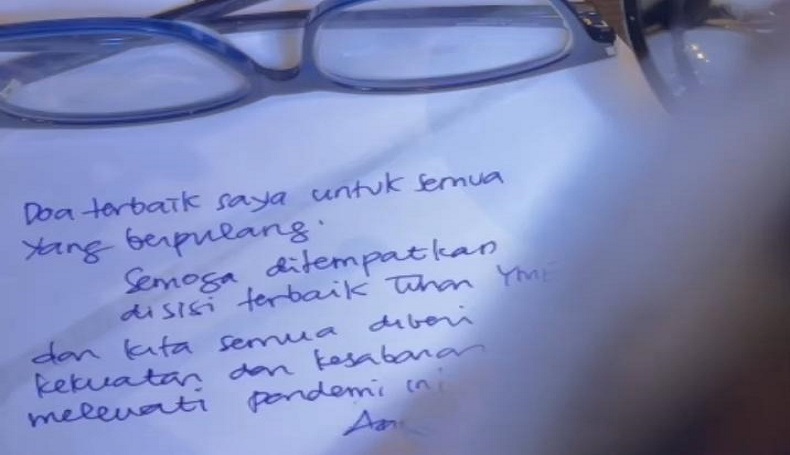 Doa terbaik saya untuk semua
yang berpulang.
Semoga ditempatkan
disisi terbaik Tuhan YME
dan kita semua diberi
kekuatan dan kesabaran
melewati pandemi ini